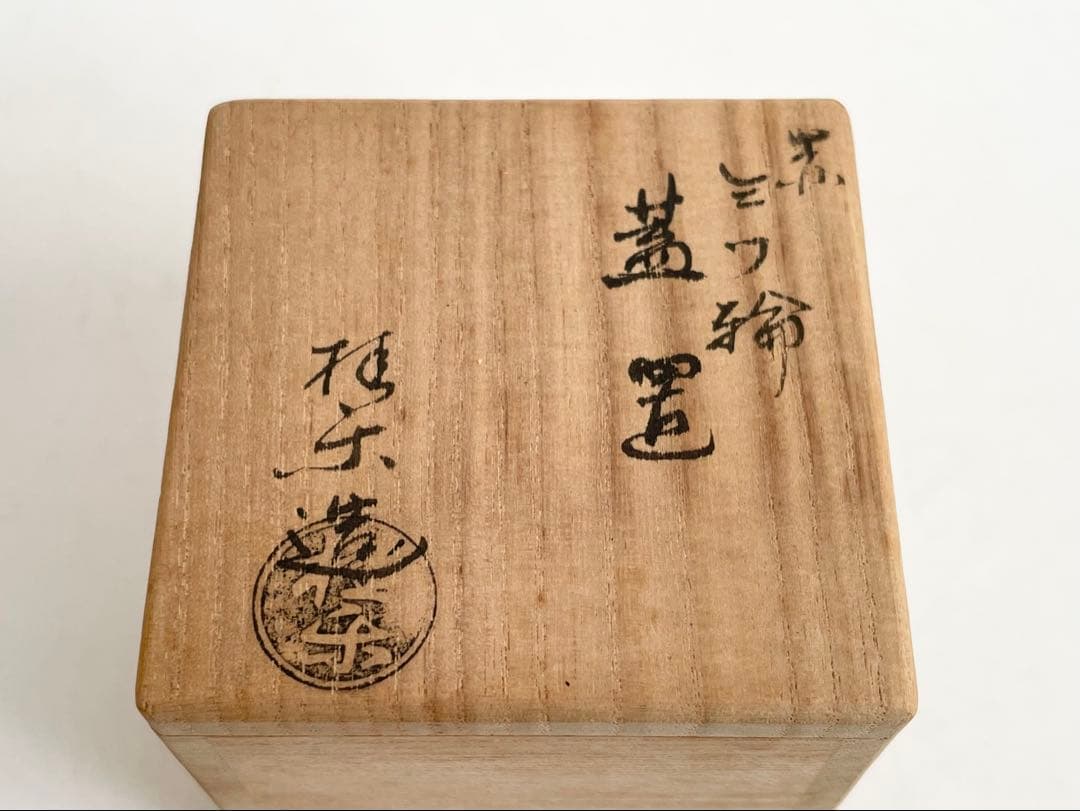 赤
三ツ輪
蓋置
桂楽造